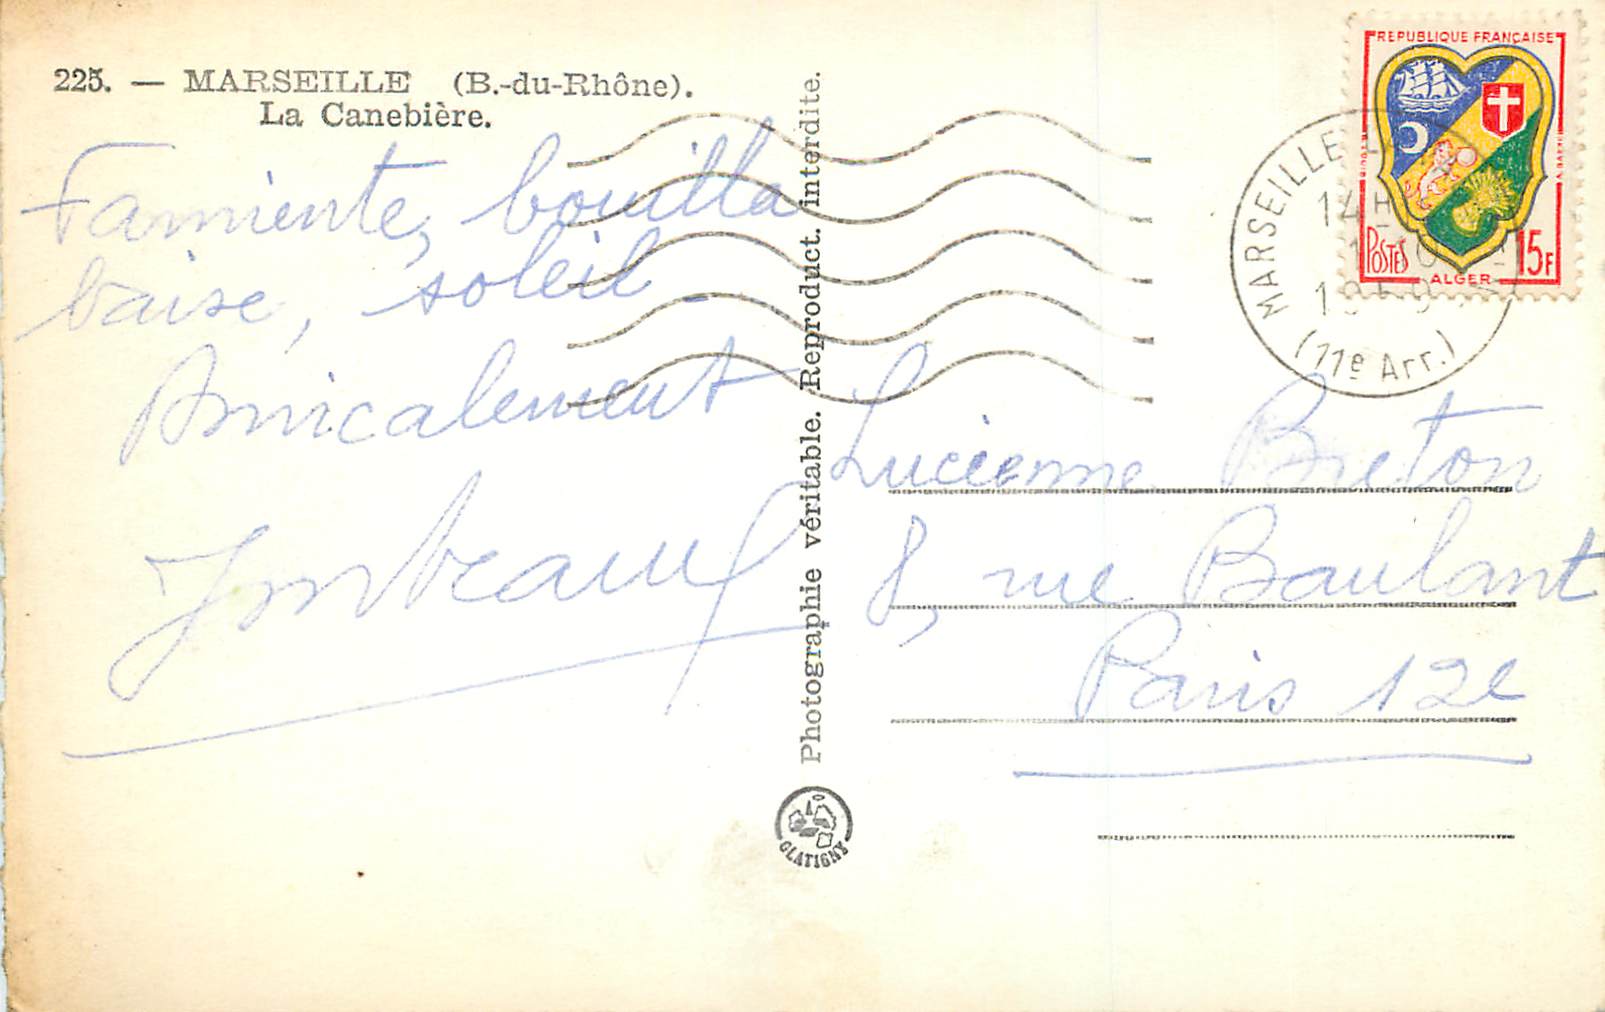 225. — MARSEILLE (B.-du-Rhône).
La Canebière.
Farniente, bouilla
baise, soleil
Amicalement
Photographie véritable. Reproduct. interdite.
GLATIGNY
REPUBLIQUE FRANÇAISE
POSTES
15F
ALGER
MARSEILLE
14H
(11e Arr.)
Lucienne Breton
8, rue Baulant
Paris 12e